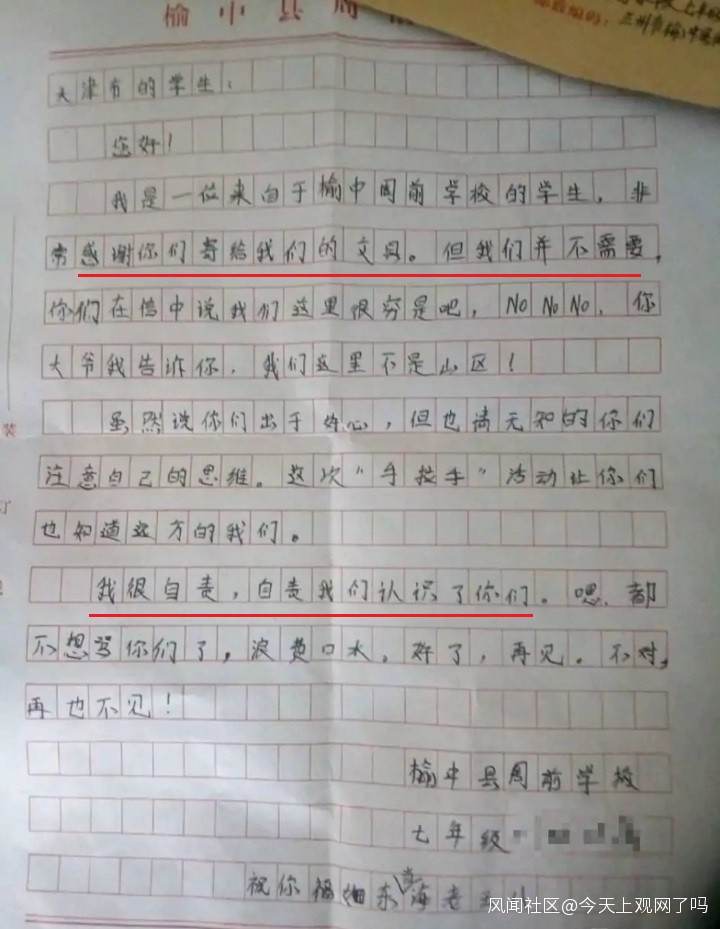 榆中县周
天津市的学生:
您好!
我是一位来自于榆中周前学校的学生,非
常感谢你们寄给我们的文具。但我们并不需要,
你们在信中说我们这里很穷是吧,NO NO NO,你
大爷我告诉你,我们这里不是山区!
虽然说你们出于好心,但也请无知的你们
装
注意自己的思维。这次“手拉手”活动让你们
订
也知道远方的我们。
我很自责,自责我们认识了你们。嗯,都
不想骂你们了,浪费口水。好了,再见。不对,
再也不见!
榆中县周前学校
七年级
祝你福如东海老
风闻社区@今天上观网了吗